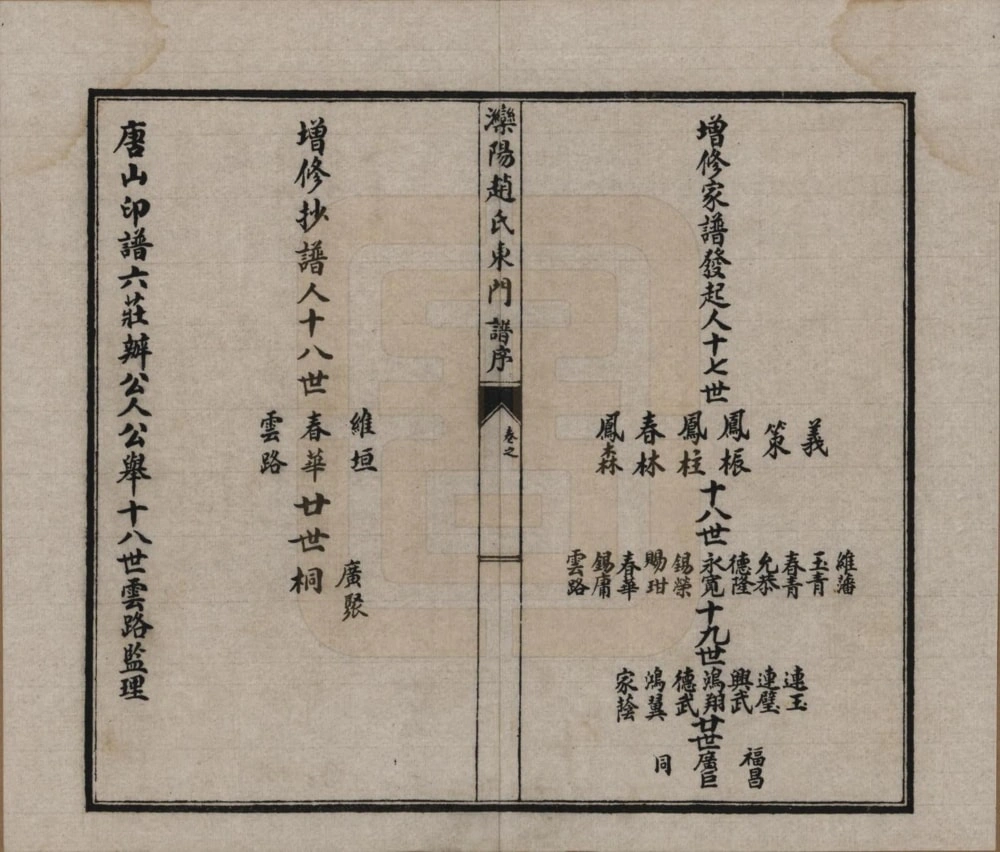 增修家譜發起人十七世
義
策
鳳桭
鳳柱
春林
鳳森
十八世
維藩
玉青
春青
允恭
德隆
永寬
錫榮
賜玵
春華
錫庸
雲路
十九世
連玉
連璧
興武
鴻翔
德武
鴻翼
家蔭
廿世
福昌
廣巨
同
灤陽趙氏東門譜序
卷之
增修抄譜人十八世
維垣
春華
雲路
廿世
廣聚
桐
唐山印譜六莊辦公人公舉十八世雲路監理